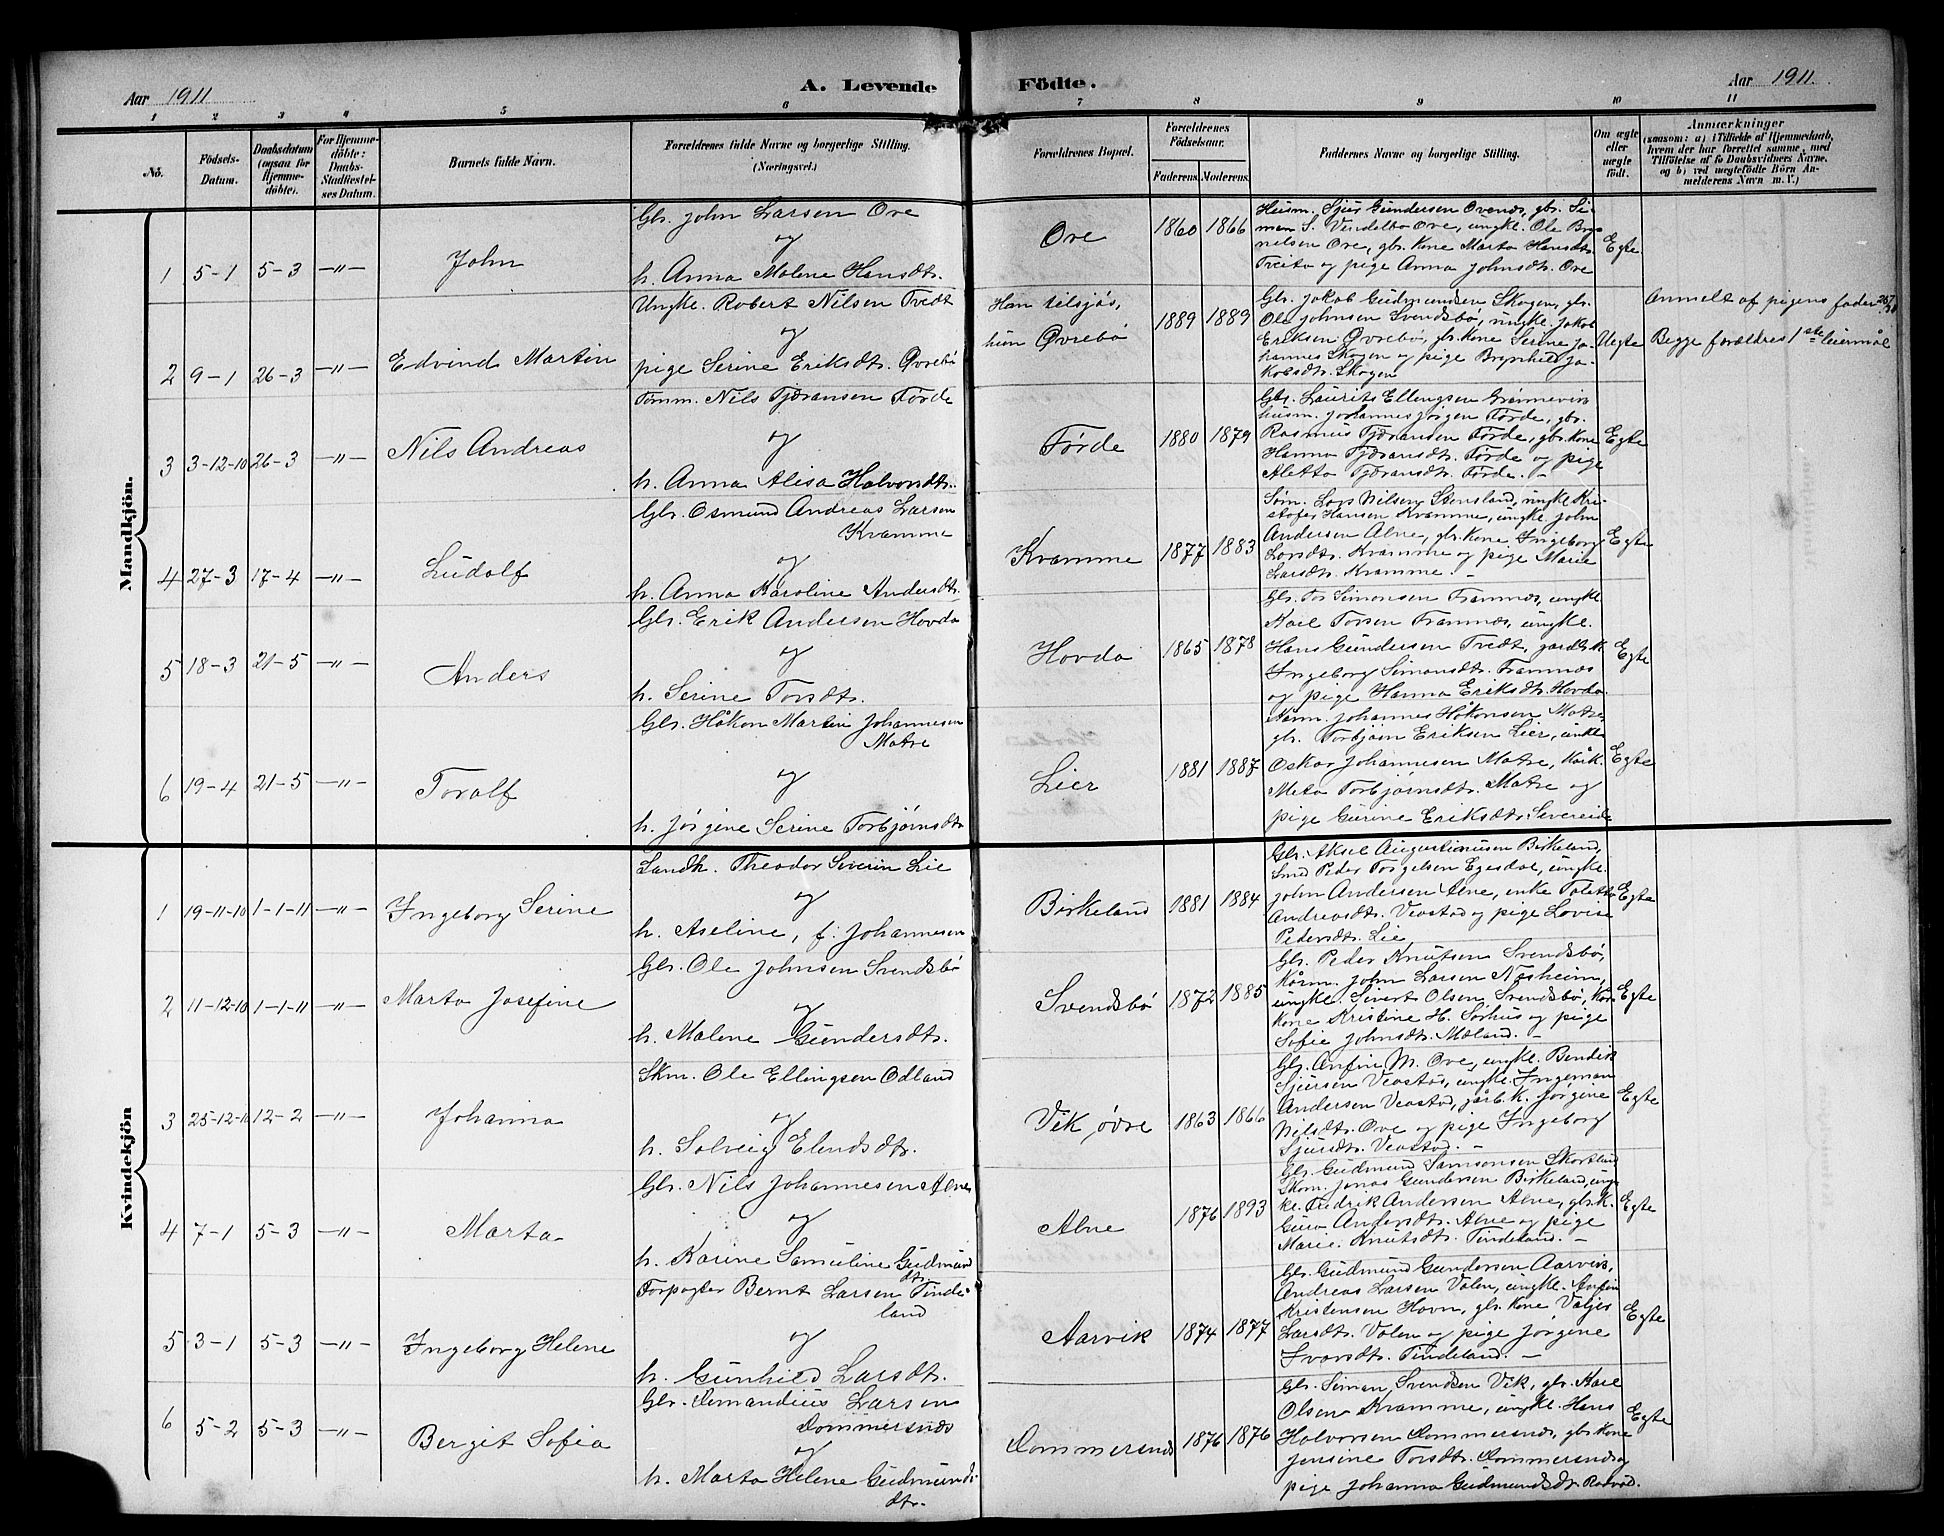 Aar 1911
A. Levende
Födte.
Aar 1911.
1 2 3 4 5 6 7 8 9 10 11
No.
Födsels-
Datum.
Daabsdatum
(ogsaa for
Hjemme-
döbte).
For Hjemme-
döbte:
Daabs-
Stadfæstel-
ses Datum.
Barnets fulde Navn.
Forældrenes fulde Navne og borgerlige Stilling.
(Næringsvei.)
Forældrenes Bopæl.
Forældrenes
Födselsaar.
Faderens. Moderens.
Faddernes Navne og borgerlige Stilling.
Om ægte
eller
uægte
födt.
Anmærkninger
(saasom: a) i Tilfælde af Hjemmedaab,
hvem der har forrettet samme, med
Tilföielse af to Daabsvidners Navne,
og b) ved uægtefödte Börn An-
melderens Navn m. V.)
Mandkjön.
1 5-1 5-3 —"— John
Gbr. John Larsen Ove
og
h. Anna Malene Hansdtr.
Ove 1860 1866
Husm. Sjur Gundersen Ovenes, gbr. Si-
man S. Vendelbo Ove, ungk. Ole Bry-
nilsen Ove, gbr. kone Marta Hansdtr.
Tveita og pige Anna Johnsdtr. Ove
Egte
2 9-1 26-3 —"— Edvind Martin
Ungk. Robert Nilsen Tvedt
og
pige Serine Eriksdtr. Øvrebø
Han tilsjøs,
hun Øvrebø
1889 1889
Gbr. Jakob Gudmundsen Skogen, gbr.
Ole Johnsen Svendsbø, ungk. Jakob
Eriksen Øvrebø, gbr. kone Serine Jo-
hannes Skogen og pige Brynhild Ja-
kobsdtr. Skogen
Uegte
Anmelt af pigens fader
Begge forældres 1ste leiermål
3 3-12-10 26-3 —"— Nils Andreas
Tømm. Nils Tjøransen Førde
og
h. Anna Alisa Halvorsdtr.
Førde 1880 1879
Gbr. Laurits Ellingsen Grønnevik
husm. Johannes Jørgen Førde, gbr.
Rasmus Tjøransen Førde, gbr. kone
Hanna Tjøransdtr. Førde og pige
Aletta Tjøransdtr. Førde. —
Egte
4 27-3 17-4 —"— Ludolf
Gbr. Osmund Andreas Larsen
Kvamme
og
h. Anna Karoline Andersdtr.
Kvamme 1877 1883
Søm. Lars Nilsen Stensland, ungk. Kri-
stofer Hansen Kvamme, ungk. John
Andersen Alne, gbr. kone Ingeborg
Larsdtr. Kvamme og pige Marie
Larsdtr. Kvamme. —
Egte
5 18-3 21-5 —"— Anders
Gbr. Erik Andersen Hovda
og
h. Serine Torsdtr.
Hovda 1865 1878
Gbr. Tor Simonsen Framnes, ungk.
Karl Torsen Framnes, ungk.
Hans Gundersen Tvedt, gardbr. k.
Ingeborg Simonsdtr. Framnes
og pige Hanna Eriksdtr. Hovda.
Egte
6 19-4 21-5 —"— Toralf
Gbr. Håkon Martin Johannesen
Matre
og
h. Jørgine Serine Torbjørnsdtr.
Lier 1881 1887
Johannes Håkonsen Matre,
gbr. Torbjørn Eriksen Lier, ungk.
Oskar Johannesen Matre,
Meta Torbjørnsdtr. Matre og
pige Gurine Eriksdtr. Severeide
Egte
Kvindekjön
1 19-11-10 1-1-11 —"— Ingeborg Serine
Landh. Theodor Severin Lie
og
h. Aseline, f. Johannesen
Birkeland 1881 1884
Gbr. Aksel Augustinusen Birkeland,
Smd Peder Torgelsen Egesdal, ungk.
John Andersen Alne, enke Toletta
Andreasdtr. Veastad og pige Lovise
Pedersdtr. Lie
Egte
2 11-12-10 1-1-11 —"— Marta Josefine
Gbr. Ole Johnsen Svendsbø
og
h. Malene Gundersdtr.
Svendsbø 1872 1885
Gbr. Peder Knutsen Svendsbø,
Kårm. John Larsen Nesheim,
ungk. Sivert Olsen Svendsbø, kår-
kone Kristine H. Sørhus og pige
Sofie Johnsdtr. Mæland. —
Egte
3 25-12-10 12-2 —"— Johanna
Skm. Ole Ellingsen Odland
og
h. Solveig Elendsdtr.
Vik, øvre 1863 1866
Gbr. Anfin M. Ove, ungk. Bendik
Sjursen Veastad, ungk. Ingeman
Andersen Veastad, garb. k. Jørgine
Nilsdtr. Ove og pige Ingeborg
Sjursdtr. Veastad. —
Egte
4 7-1 5-3 —"— Marta
Gbr. Nils Johannesen Alne
og
h. Karine Samueline Gudmund
dtr.
Alne 1876 1893
Gbr. Gudmund Samsonsen Skartland
Skom. Jonas Gundersen Birkeland, ung-
k. Fredrik Andersen Alne, gbr. k.
Guro Andersdtr. Alne og pige
Marie Knutsdtr. Tindeland. —
Egte
5 3-1 5-3 —"— Ingeborg Helene
Forpagter Bernt Larsen Tinde-
land
og
h. Gunhild Larsdtr.
Aarvik 1874 1877
Gbr. Gudmund Gundersen Aarvik,
Andreas Larsen Valen, ungk. Anfin
Kristensen Havn, gbr. kone Valjer
Larsdtr. Valen og pige Jørgine
Ivarsdtr. Tindeland. —
Egte
6 5-2 5-3 —"— Bergit Sofia
Gbr. Domandius Larsen
Dommersnes
og
h. Marta Helene Gudmunds-
dtr.
Dommersnes 1876 1876
Gbr. Siman Svendsen Vik, gbr. Karl
Olsen Kvamme, ungk. Hans
Halvorsen Dommersnes, gbr. kone
Jensine Torsdtr. Dommersnes
pige Johanna Gudmundsdtr. Rødvød.
Egte